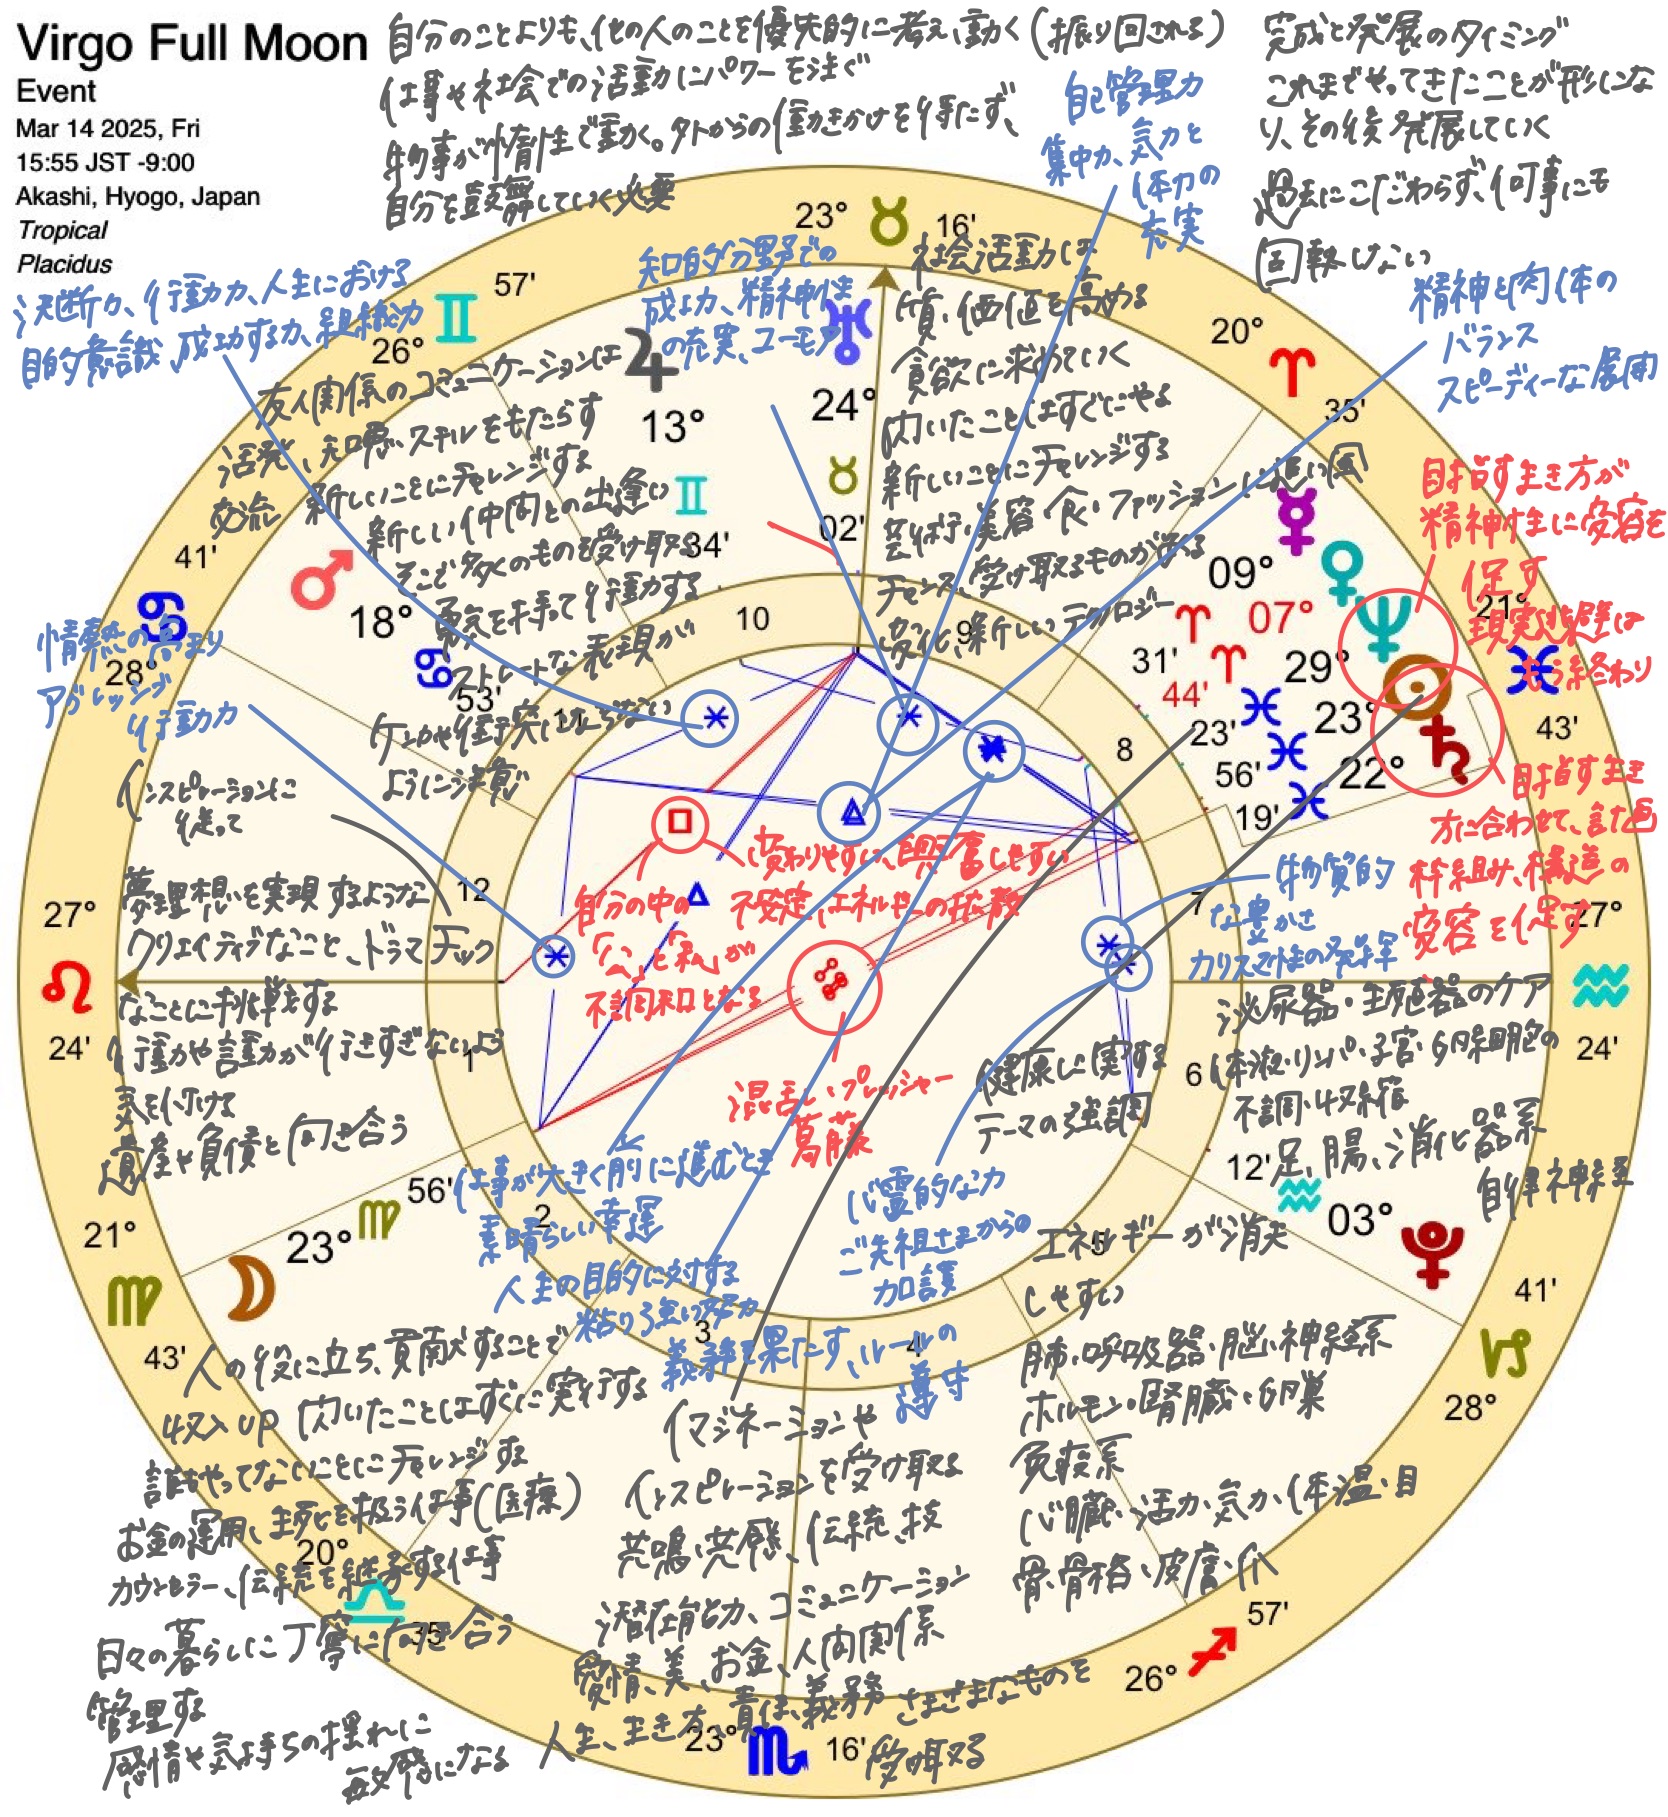 Virgo Full Moon
Event
Mar 14 2025, Fri
15:55 JST -9:00
Akashi, Hyogo, Japan
Tropical
Placidus
自分のことよりも、他の人のことを優先的に考え、動く(振り回される)
仕事や社会での活動にパワーを注ぐ
物事が惰性で動く。外からの働きかけを待たず、
自分を鼓舞していく必要
完成と発展のタイミング
これまでやってきたことが形にな
り、その後発展していく
過去にこだわらず、何事にも
固執しない
自己管理力
集中力、気力と
体力の
充実
精神と肉体の
バランス
スピーディーな展開
決断力、行動力、人生における
目的意識、成功する力、組織力
知的分野での
成功、精神性
の充実、ユーモア
社会活動は
質、価値を高める
貪欲に求めていく
閃いたことはすぐにやる
新しいことにチャレンジする
芸術・美容・食・ファッションに追い風
チャンス、受け取るものが
変化、新しいテクノロジー
友人関係のコミュニケーションは
活発、知恵、スキルをもたらす
交流
新しいことにチャレンジする
新しい仲間との出逢い
そこで多くのものを受け取る
勇気を持って行動する
ストレートな表現が
ケンカや衝突にならない
ように注意
目指す生き方が
精神性に変容を
促す
現実逃避は
もう終わり
目指す生き
方に合わせて、計画
枠組み、構造の
変容を促す
情熱の高まり
アグレッシブ
行動力
インスピレーションに
従って
夢理想を実現するような
クリエイティブなこと、ドラマチック
なことに挑戦する
行動や言動が行きすぎないよう
気を付ける
遺産や負債と向き合う
変わりやすい、興奮しやすい
不安定、エネルギーの拡散
自分の中の
「公」と「私」が
不調和となる
混乱、プレッシャー
葛藤
物質的
な豊かさ
カリスマ性の発揮
健康に関する
テーマの強調
泌尿器・生殖器のケア
体液・リンパ・子宮・卵細胞の
不調・収縮
足、腸、消化器系
自律神経
仕事が大きく前に進むとき
素晴らしい幸運
人生の目的に対する
粘り強い努力
義務を果たす、ルールの
遵守
心霊的な力
ご先祖さまからの
加護
エネルギーが消失
しやすい
肺・呼吸器・脳・神経系
ホルモン・腎臓・卵巣
免疫系
心臓・活力・気力・体温・目
骨・骨格・皮膚・爪
人の役に立ち、貢献することで
収入UP 閃いたことはすぐに実行する
誰もやってないことにチャレンジする
お金の運用、生死を扱う仕事(医療)
カウンセラー、伝統を継承する仕事
日々の暮らしに丁寧に向き合う
管理する
感情や気持ちの揺れに
敏感になる
イマジネーションや
インスピレーションを受け取る
共鳴、共感、伝統、技
潜在能力、コミュニケーション
愛情、美、お金、人間関係
人生、生き方、責任、義務 さまざまなものを
受け取る
23° ♉ 16'
20° ♈ 35'
21° ♓ 43'
27° ♒ 24'
41' ♑ 28°
57' ♐ 26°
23° ♏ 16'
20° ♎ 35'
21° ♍ 43'
27° ♌ 24'
41' ♋ 28°
57' ♊ 26°
♃ 13° ♊ 34'
♅ 24° ♉ 02'
☿ 09° ♈ 31'
♀ 07° ♈ 44'
♆ 29° ♓ 23'
☉ 23° ♓ 56'
♄ 22° ♓ 19'
♂ 18° ♋ 53'
☽ 23° ♍ 56'
♇ 03° ♒ 12'
1
2
3
4
5
6
7
8
9
10
11
12